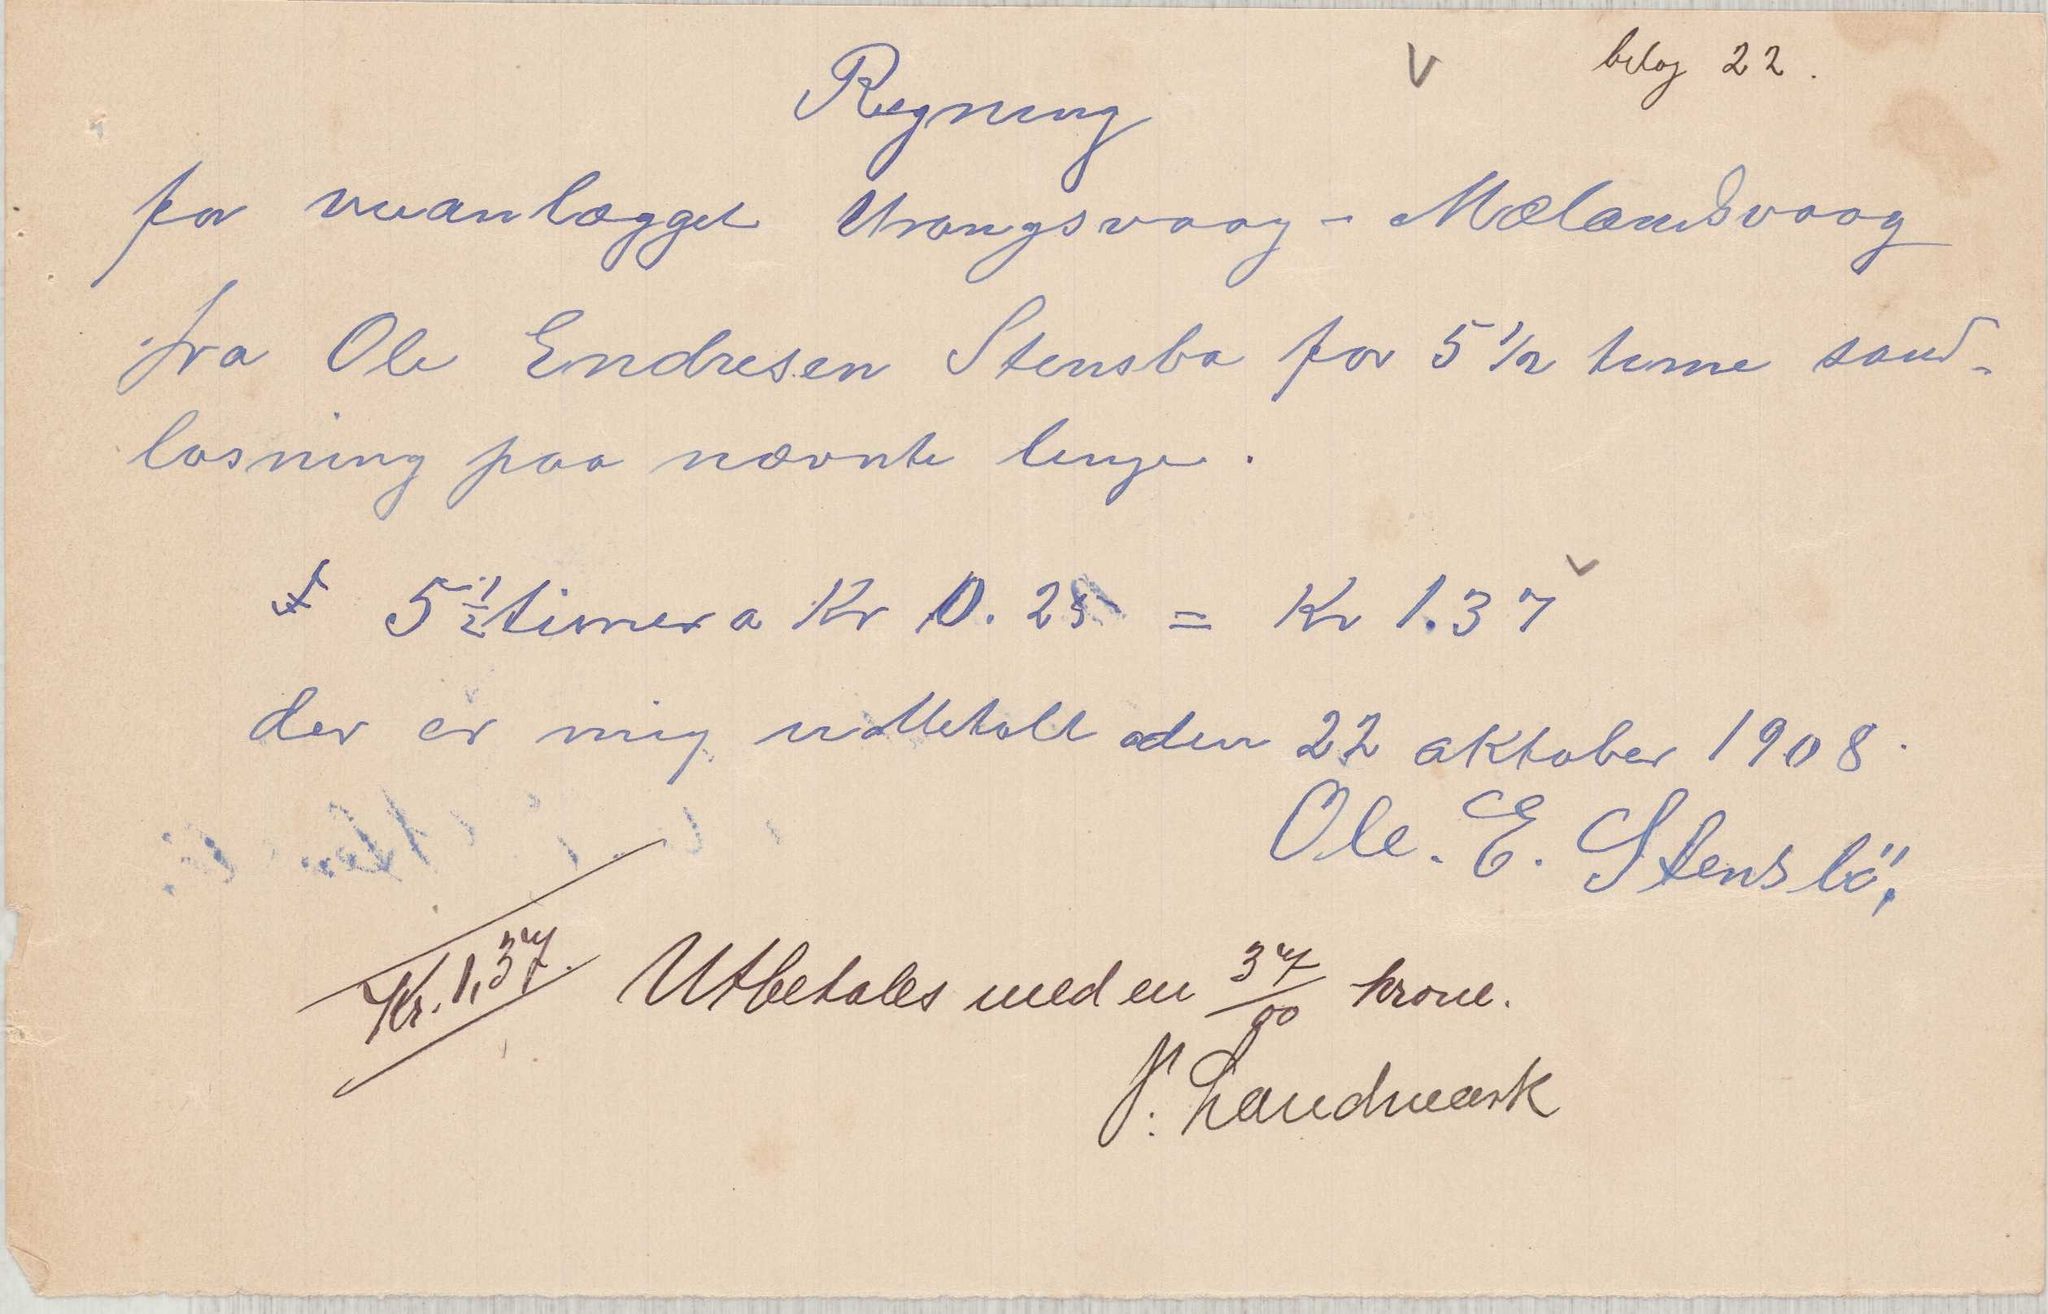 belag 22.
Regning
for veianlægget Urangsvaag - Mælandsvaag
fra Ole Endresen Stensbø for 5 1/2 time sand-
losning paa nævnte linje.
5 1/2 timer a Kr 0.25 = Kr 1.37
der er mig utbetalt den 22 oktober 1908.
Ole. E. Stensbö,
Kr. 1,37. Utbetales med en 37/00 krone.
P. Landmark